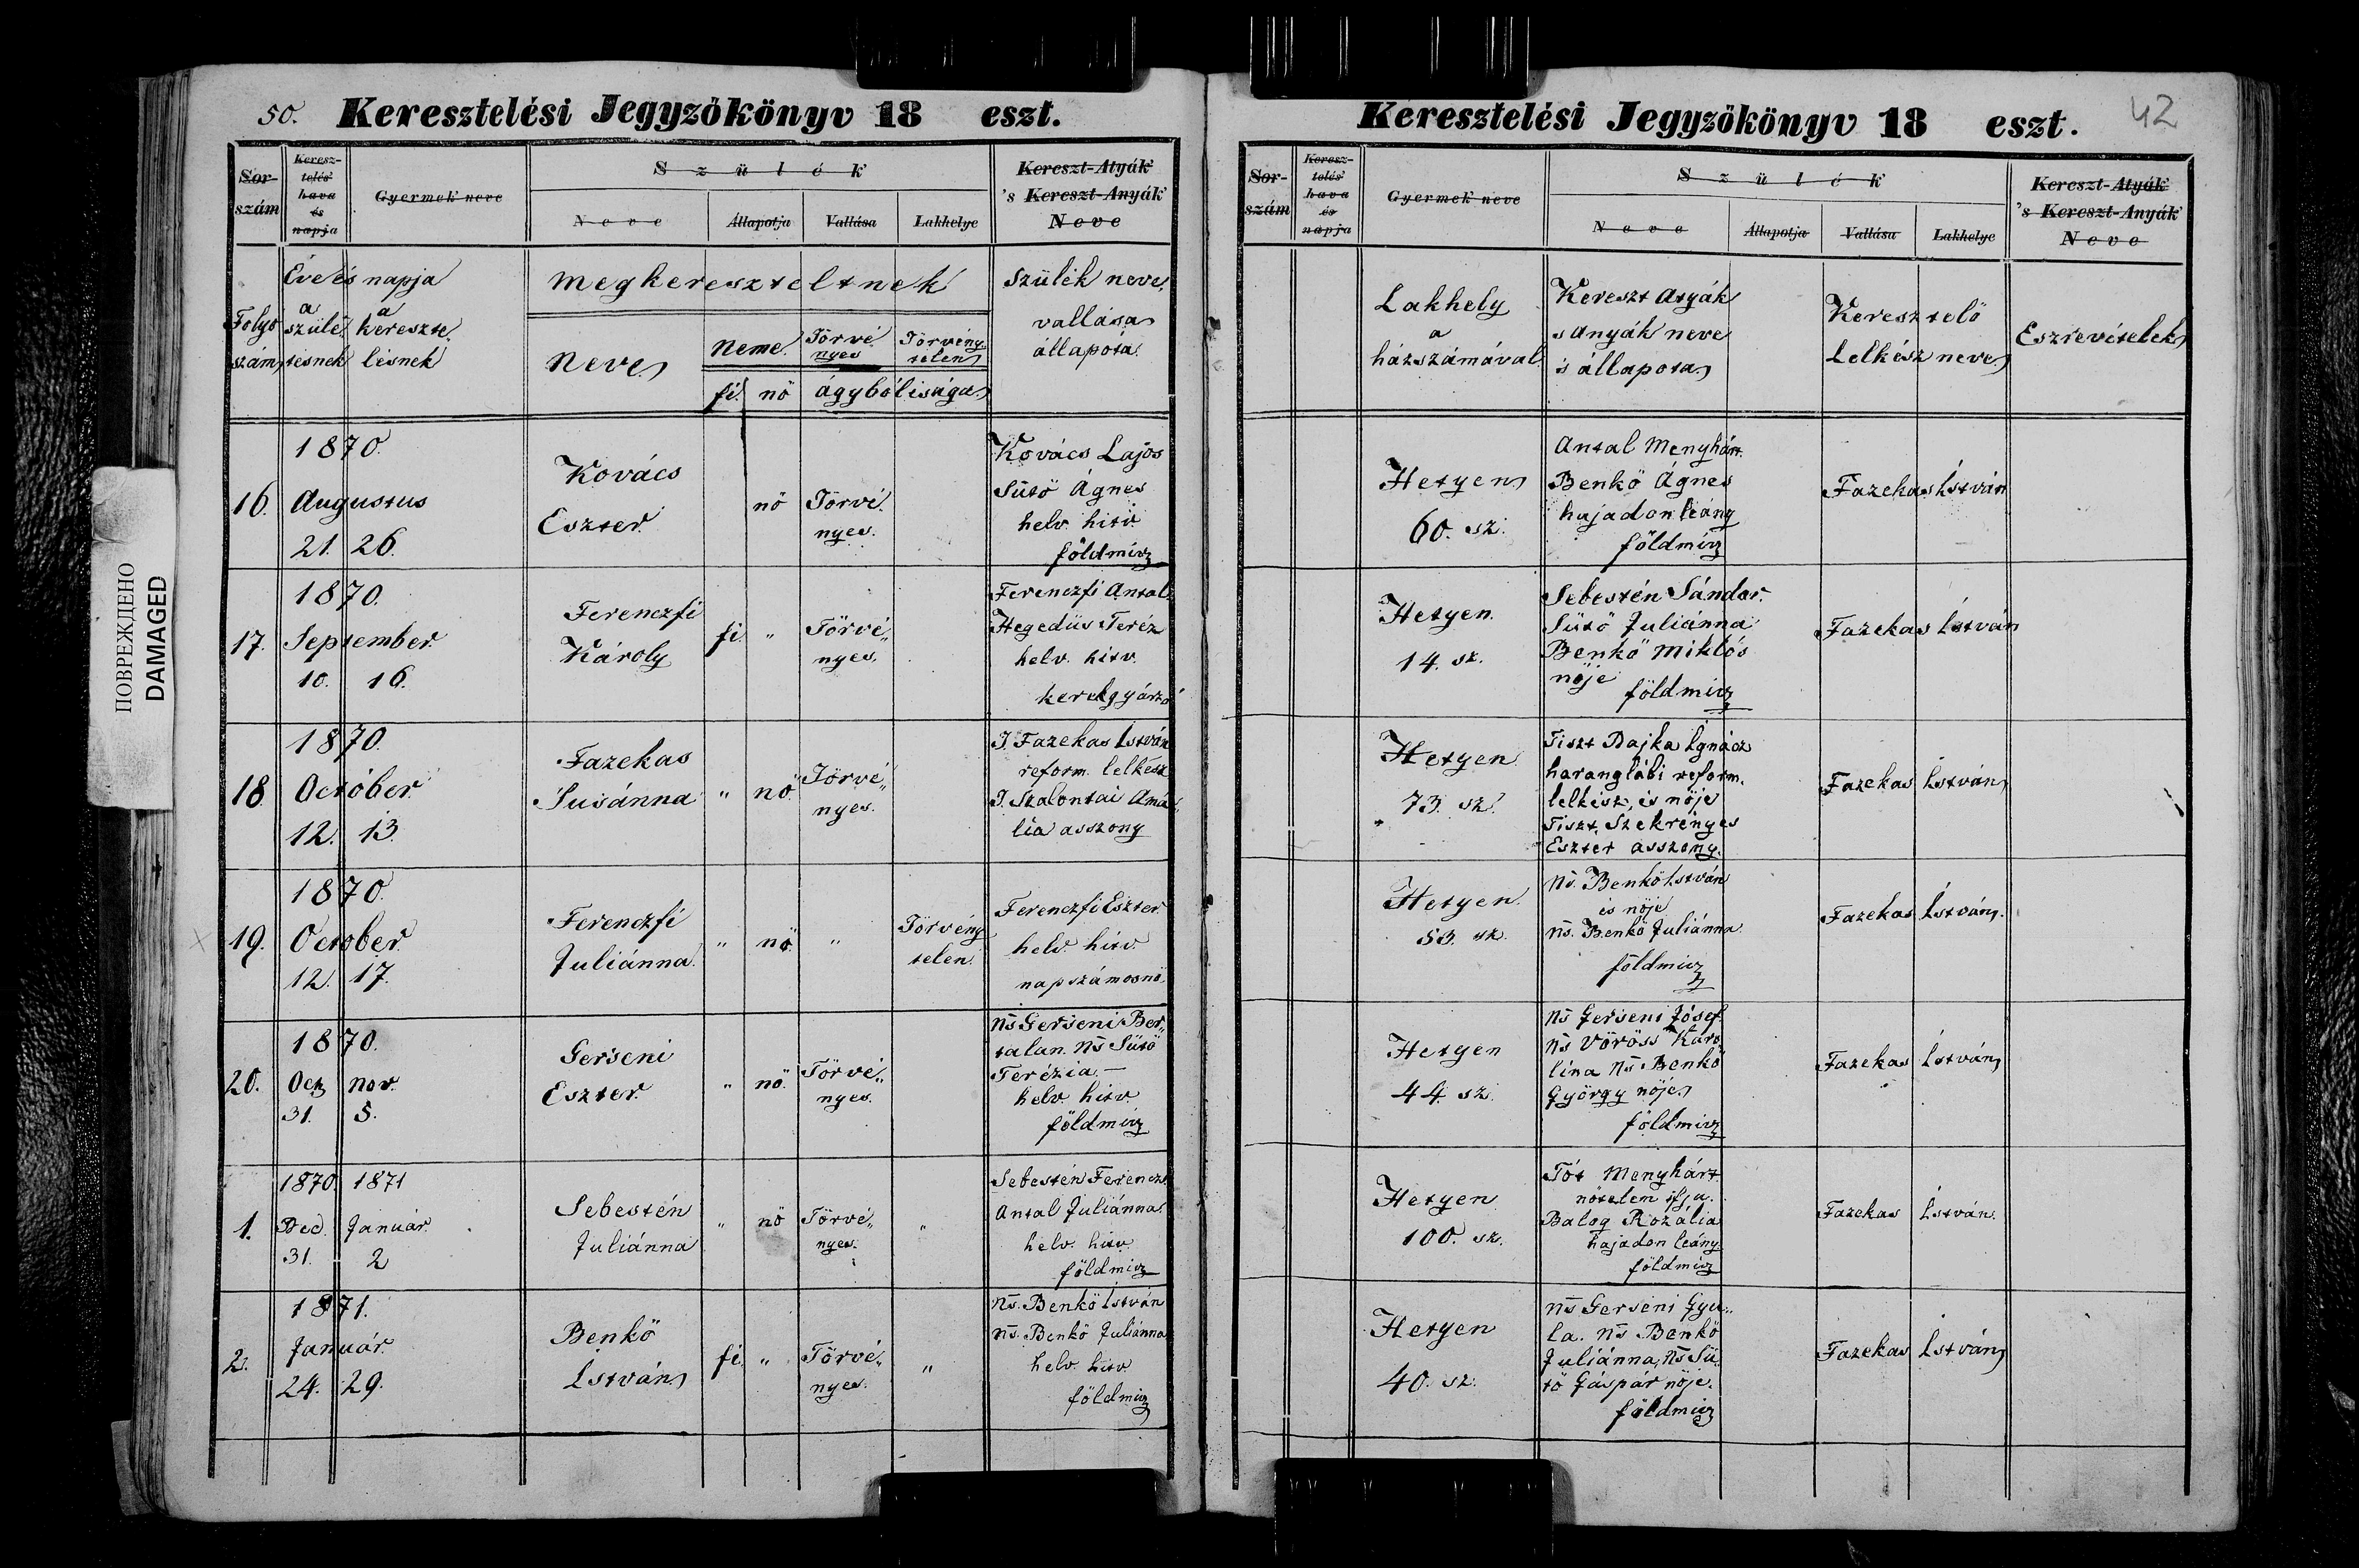 50. Keresztelési Jegyzőkönyv 18 eszt.
Sor-szám
Keresz-telés hava és napja
Gyermek neve
Szülék
Neve
Állapotja
Vallása
Lakhelye
Kereszt-Atyák
's Kereszt-Anyák
Neve
Folyó szám
Éve és napja
a szüle, tésnek
a kereszte, lésnek
megkereszteltnek
neve
neme
fi
nö
Törvé nyes
Törvény telen
ágybóli sága
szülék neve,
vallása
állapota.
16.
1870.
Augustus
21. 26.
Kovács
Eszter.
nö
Törvé.
nyes.
Kovács Lajos
Sütö Ágnes
helv. hitü
földmivz
17.
1870.
September.
10. 16.
Ferenczfi
Károly
fi. "
Törvé„
nyes.
Ferenczfi Antal.
Hegedüs Teréz
helv. hitv.
kerékgyártó
18
1870.
Octóber.
12. 13.
Fazekas
Susánna
" nö.
Törvé„
nyes.
T. Fazekas István
reform. lelkész
T. Szalontai Amá„
lia asszony
19.
1870.
October.
12. 17.
Ferenczfi
Juliánna.
" nö. "
Törvény
telen.
Ferenczfi Eszter.
helv. hitv.
napszámosnö.
20.
1870.
Oct nov.
31. 5.
Gerseni
Eszter.
" nö.
Törvé„
nyes.
Ns Gerseni Ber„
talan. Ns Sütö
Terézia. —
helv. hitv.
földmivz
1.
1870. 1871
Dec. Január.
31. 2
Sebestén
Juliánna
" nö
Törvé„
nyes. "
Sebestén Ferencz.
Antal Juliánna.
helv. hitv.
földmivz
2.
1871.
Január.
24. 29.
Benkö
István
fi. "
Törvé„
nyes. "
Ns. Benkö István
Ns. Benkö Juliánna
helv. hitv
földmivz
Keresztelési Jegyzőkönyv 18 eszt.
42
Sor-szám
Keresz-telés hava és napja
Gyermek neve
Szülék
Neve
Állapotja
Vallása
Lakhelye
Kereszt-Atyák
's Kereszt-Anyák
Neve
Lakhely
a
házszámával
Kereszt Atyák
s Anyák neve
's állapota
Keresztelö
Lelkész neve
Eszrevételek
Hetyen
60. sz.
Antal Menyhárt.
Benkö Ágnes
hajadon leány
földmivz
Fazekas István
Hetyen.
14. sz.
Sebestén Sándor.
Sütö Juliánna
Benkö Miklós
nöje
földmivz
Fazekas István
Hetyen
73. sz.
Tiszt Bajka Ignácz
haranglábi reform.
lelkész, és nöje
Tiszt. Szekrényes
Eszter asszony.
Fazekas István
Hetyen.
53. sz.
Ns. Benkö István
és nöje
Ns. Benkö Juliánna
földmivz
Fazekas István.
Hetyen
44. sz.
Ns Gerseni József.
Ns Vöröss Karo„
lina Ns Benkö
György nöje
földmivz
Fazekas István
Hetyen
100. sz.
Tót Menyhárt
nötelem ifju.
Balog Rozália
hajadon leány.
földmivz
Fazekas István.
Hetyen
40. sz.
Ns Gerseni Gyu„
la. Ns Benkö
Juliánna, Ns Sü„
tö Gáspár nöje.
földmivz
Fazekas István
ПОВРЕЖДЕНО
DAMAGED